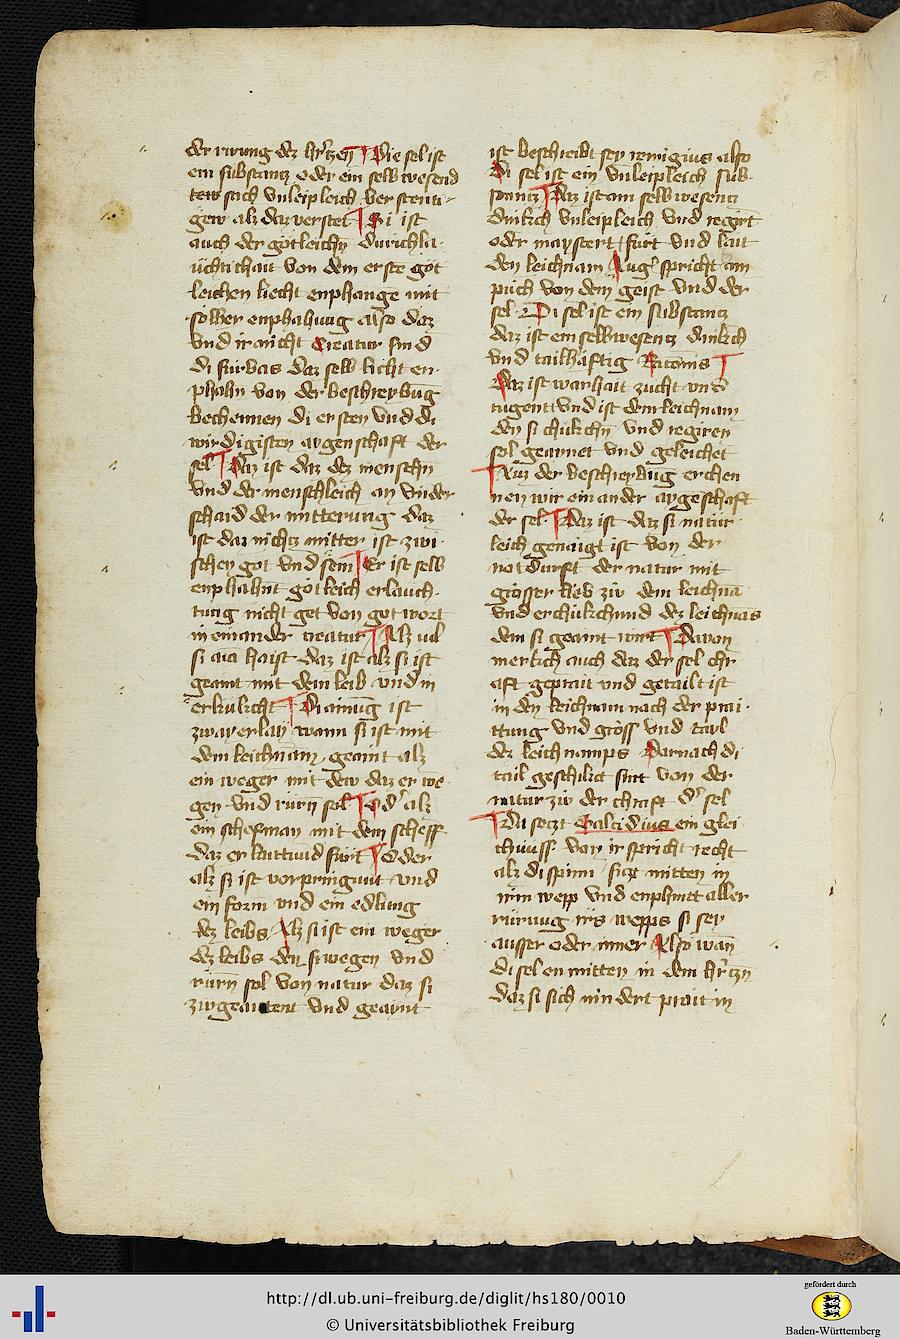 der rwung dez hr̃tzen Die sel ist
ein substantz oder ein selb wesend
sach vnleipleich verstenti-
gew alz daz verstet Si ist
auch der gotleichn̄ durichla-
üchtichait von dem erste got
leichen liecht enphange mit
sölher enphahung also daz
vnd ir nicht Creatur sind
di fürbas daz selb licht en-
phahn von der beschreybūg
bechennen di ersten vnd di
wirdigisten aygenschaft der
sel Daz ist daz dez menschn̄
vnd der menschleich an vnder
schaid der mitterung daz
ist daz nichtz mitter ist zwi-
schen got vnd sein Er ist selb
enphahnt gotleich erlauch-
tung nicht get von got wort
in einander creatur Alz vil
si aia haist daz ist alz si ist
geaint mit dem leib vnd in
erkukcht Di ainūg ist
zwayerlay wann si ist mit
dem leichnam geaint alz
ein weger mit dew daz er we-
gen vnd rürn sol Od' alz
ein schefman mit dem scheff
daz er laitt vnd fürt Oder
alz si ist vorpringunt vnd
ein form vnd ein edlung
dez leibs Alz si ist ein weger
dez leibs den si wegen vnd
rürn sol von natur daz si
vnd geaynt
ist beschreibt sey remigius also
Di sel ist ein vnleipleich sub-
stantz Daz ist ain selb wesentz
dinkch vnleipleich vnd regirt
oder maystert fürt vnd lait
den leichnam Aug' spricht am
püch von dem geist vnd der
sel Di sel ist ein substantz
daz ist ein selbwesentz dinkch
vnd tailhäftig Racōnis
Daz ist warhait zücht vnd
tugentt vnd ist dem leichnam
den si chukchn̄ vnd regiren
sol geaynet vnd geleichet
Auz der beschreibūg erchen
nen wir ein ander aygeschaft
der sel Daz ist daz si natür-
leich genaigt ist von der
notdurft der natur mit
grösser lieb zw dem leichnā
vnd erchükchund dez leichnas
dem si geaint wirt Dauon
merkch auch daz der sel chr
aft geprait vnd getailt ist
in den leichnam nach der prai-
ttung vnd gröss vnd tail
dez leichnamps Darnach di
tail geschikt sint von der
natur zw der chraft d' sel
Da setzt Calcidius ein glei-
chnuss von ir spricht recht
alz di spinn sitzt mitten in
irm wepp vnd enphintt aller
rürnug irs wepps si sey
ausser oder inner Also wan̄
di sel enmitten in dem hr̃tzn̄
daz si sich nindert prait in
http://dl.ub.uni-freiburg.de/diglit/hs180/0010
© Universitätsbibliothek Freiburg
gefördert durch
Baden-Württemberg